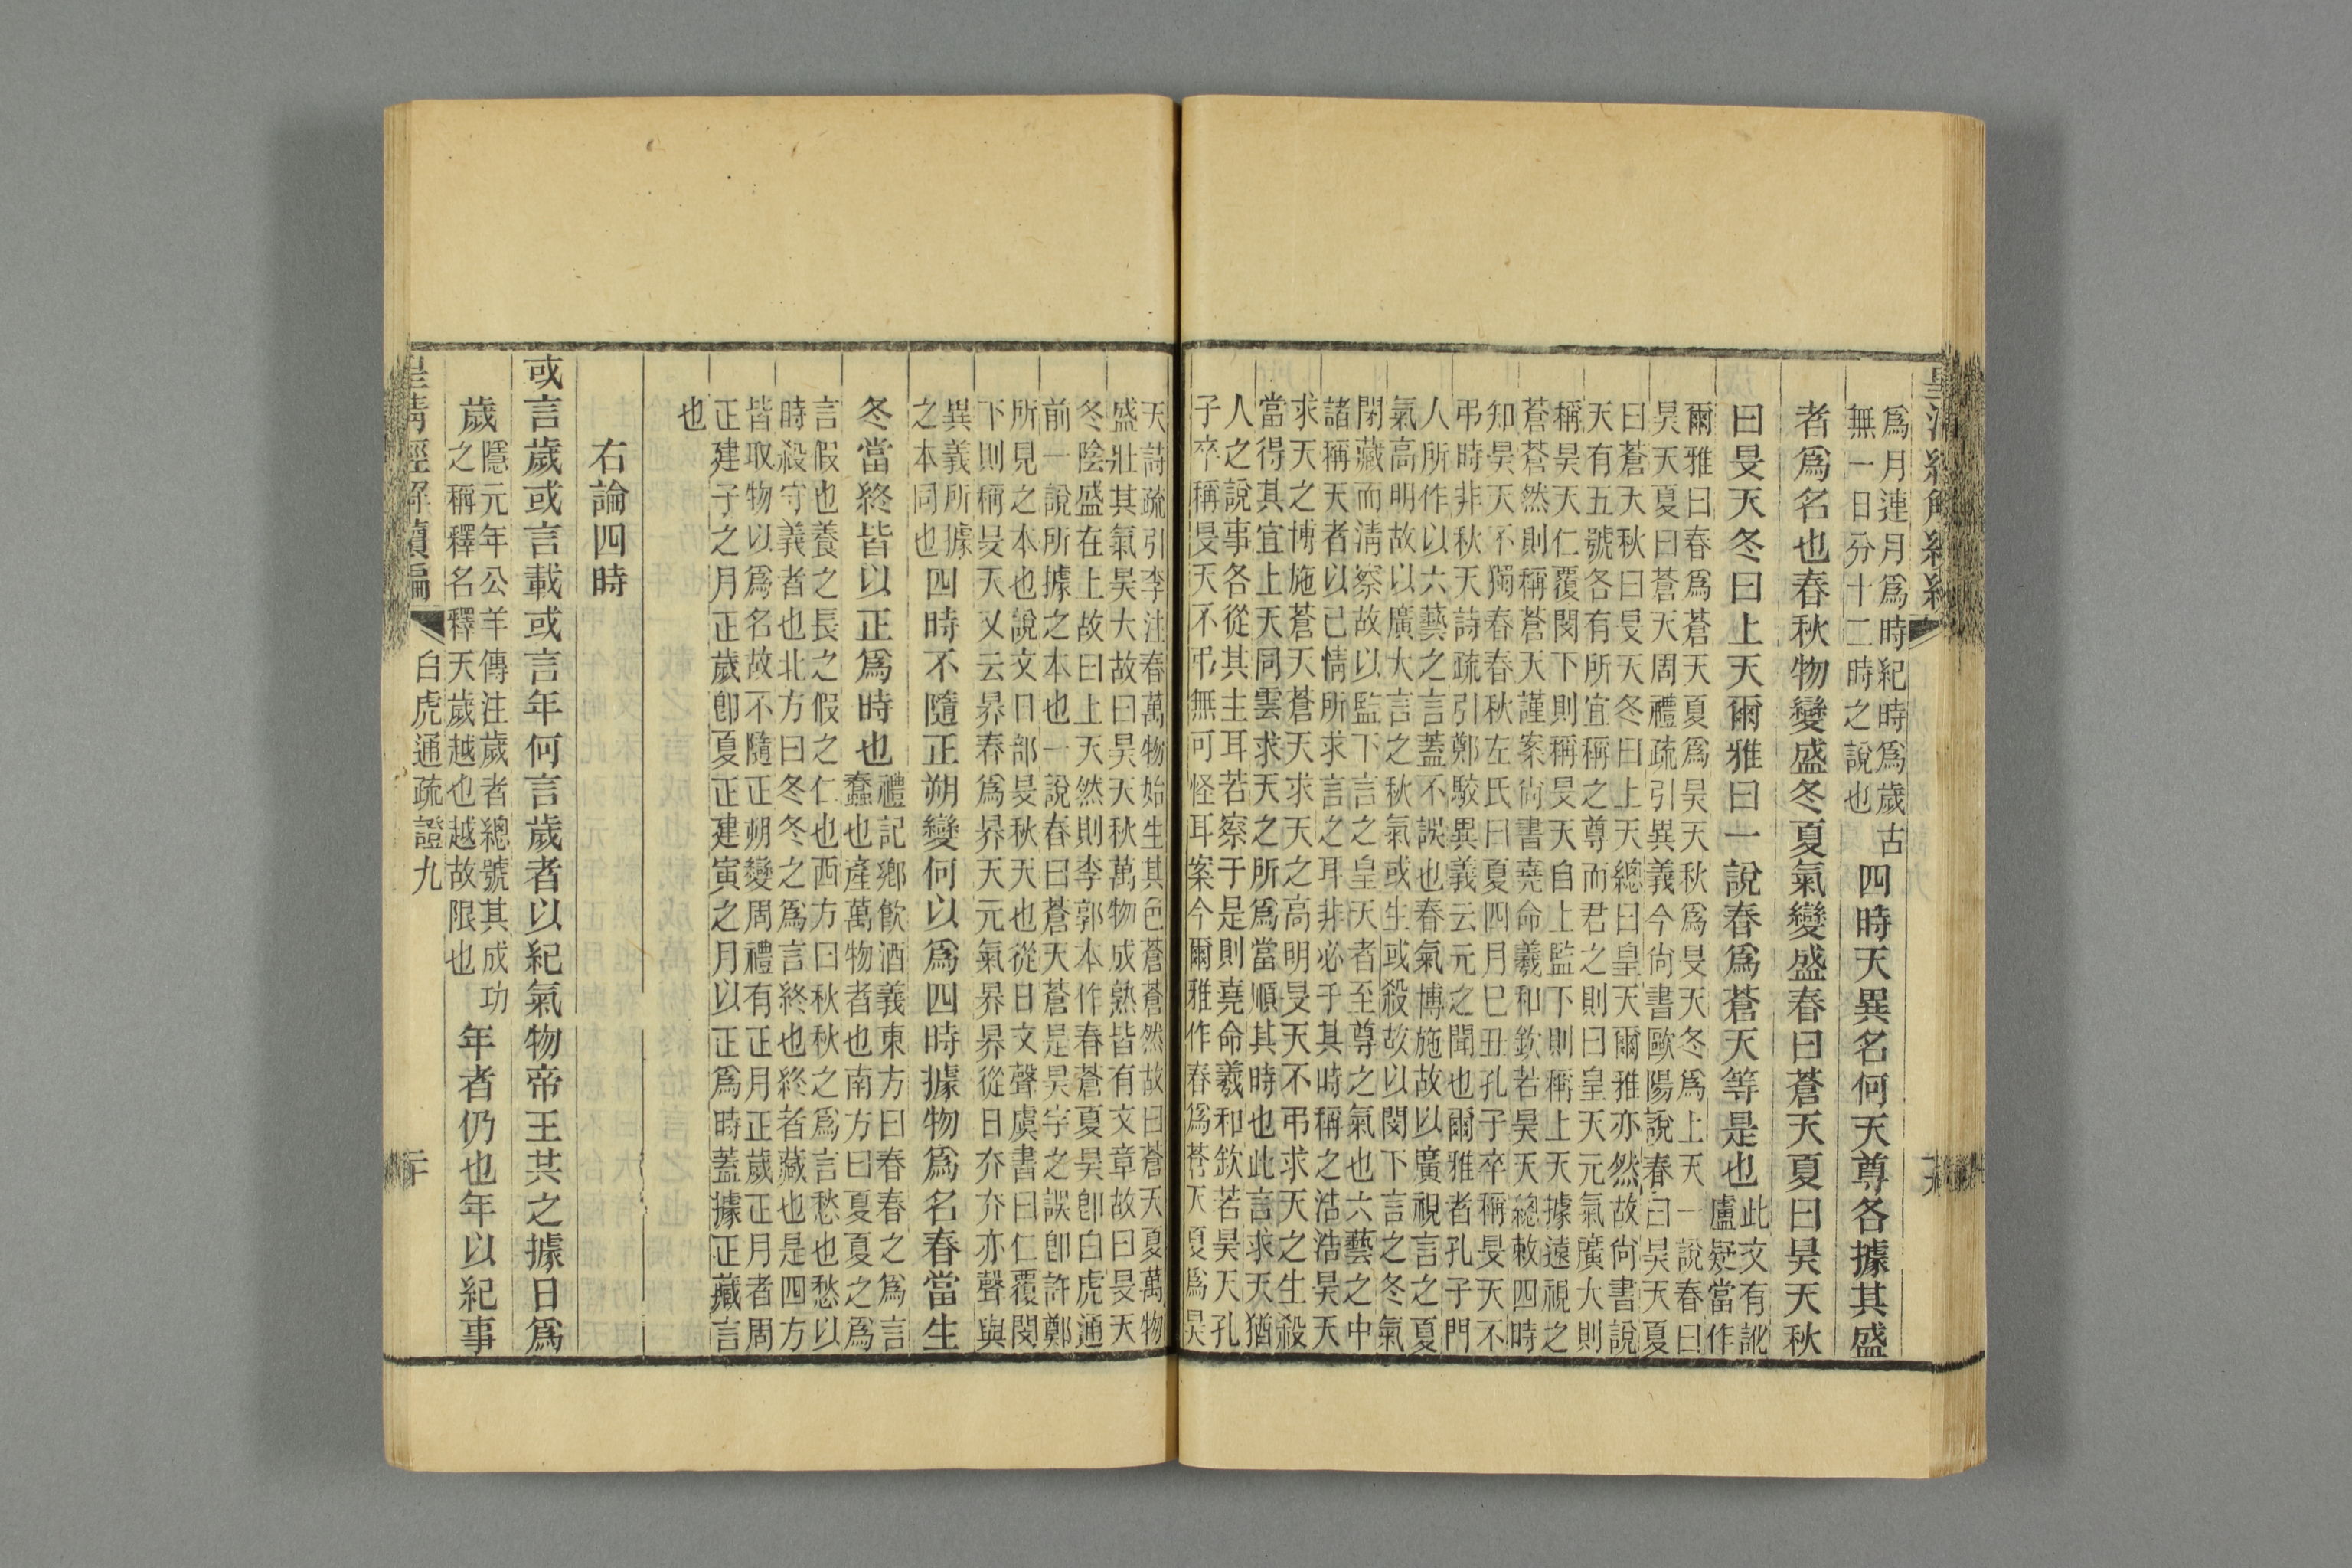 爲月連月爲時紀時爲歲古
無一日分十二時之說也
四時天異名何天尊各據其盛
者爲名也春秋物變盛冬夏氣變盛春曰蒼天夏曰昊天秋
曰旻天冬曰上天爾雅曰一說春爲蒼天等是也
此文有訛
盧疑當作
爾雅曰春爲蒼天夏爲昊天秋爲旻天冬爲上天一說春曰
昊天夏曰蒼天周禮疏引異義今尙書歐陽說春曰昊天夏
曰蒼天秋曰旻天冬曰上天總曰皇天爾雅亦然故尙書說
天有五號各有所宜稱之尊而君之則曰皇天元氣廣大則
稱昊天仁覆閔下則稱旻天自上監下則稱上天據遠視之
蒼蒼然則稱蒼天謹案尙書堯命羲和欽若昊天總敕四時
知昊天不獨春春秋左氏曰夏四月巳丑孔子卒稱旻天不
弔時非秋天詩疏引鄭駮異義云元之聞也爾雅者孔子門
人所作以六藝之言蓋不誤也春氣博施故以廣視言之夏
氣高明故以廣大言之秋氣或生或殺故以閔下言之冬氣
閉藏而淸察故以監下言之皇天者至尊之氣也六藝之中
諸稱天者以已情所求言之耳非必于其時稱之浩浩昊天
求天之博施蒼天蒼天求天之高明旻天不弔求天之生殺
當得其宜上天同雲求天之所爲當順其時也此言求天猶
人之說事各從其主耳若察于是則堯命羲和欽若昊天孔
子卒稱旻天不弔無可怪耳案今爾雅作春爲蒼天夏爲昊
天詩疏引李注春萬物始生其色蒼蒼然故曰蒼天夏萬物
盛壯其氣昊大故曰昊天秋萬物成熟皆有文章故曰旻天
冬陰盛在上故曰上天然則李郭本作春蒼夏昊卽白虎通
前一說所據之本也一說春曰蒼天蒼是昊字之誤卽許鄭
所見之本也說文日部旻秋天也從日文聲虞書曰仁覆閔
下則稱旻天又云昦春爲昦天元氣昦昦從日夰夰亦聲與
異義所據
之本同也
四時不隨正朔變何以爲四時據物爲名春當生
冬當終皆以正爲時也
禮記鄉飮酒義東方曰春春之爲言
蠢也產萬物者也南方曰夏夏之爲
言假也養之長之假之仁也西方曰秋秋之爲言愁也愁以
時殺守義者也北方曰冬冬之爲言終也終者藏也是四方
皆取物以爲名故不隨正朔變周禮有正月正歲正月者周
正建子之月正歲卽夏正建寅之月以正爲時蓋據正藏言
也
右論四時
或言歲或言載或言年何言歲者以紀氣物帝王共之據日爲
歲
隱元年公羊傳注歲者總號其成功
之稱釋名釋天歲越也越故限也
年者仍也年以紀事
皇淸經解續編
白虎通疏證九